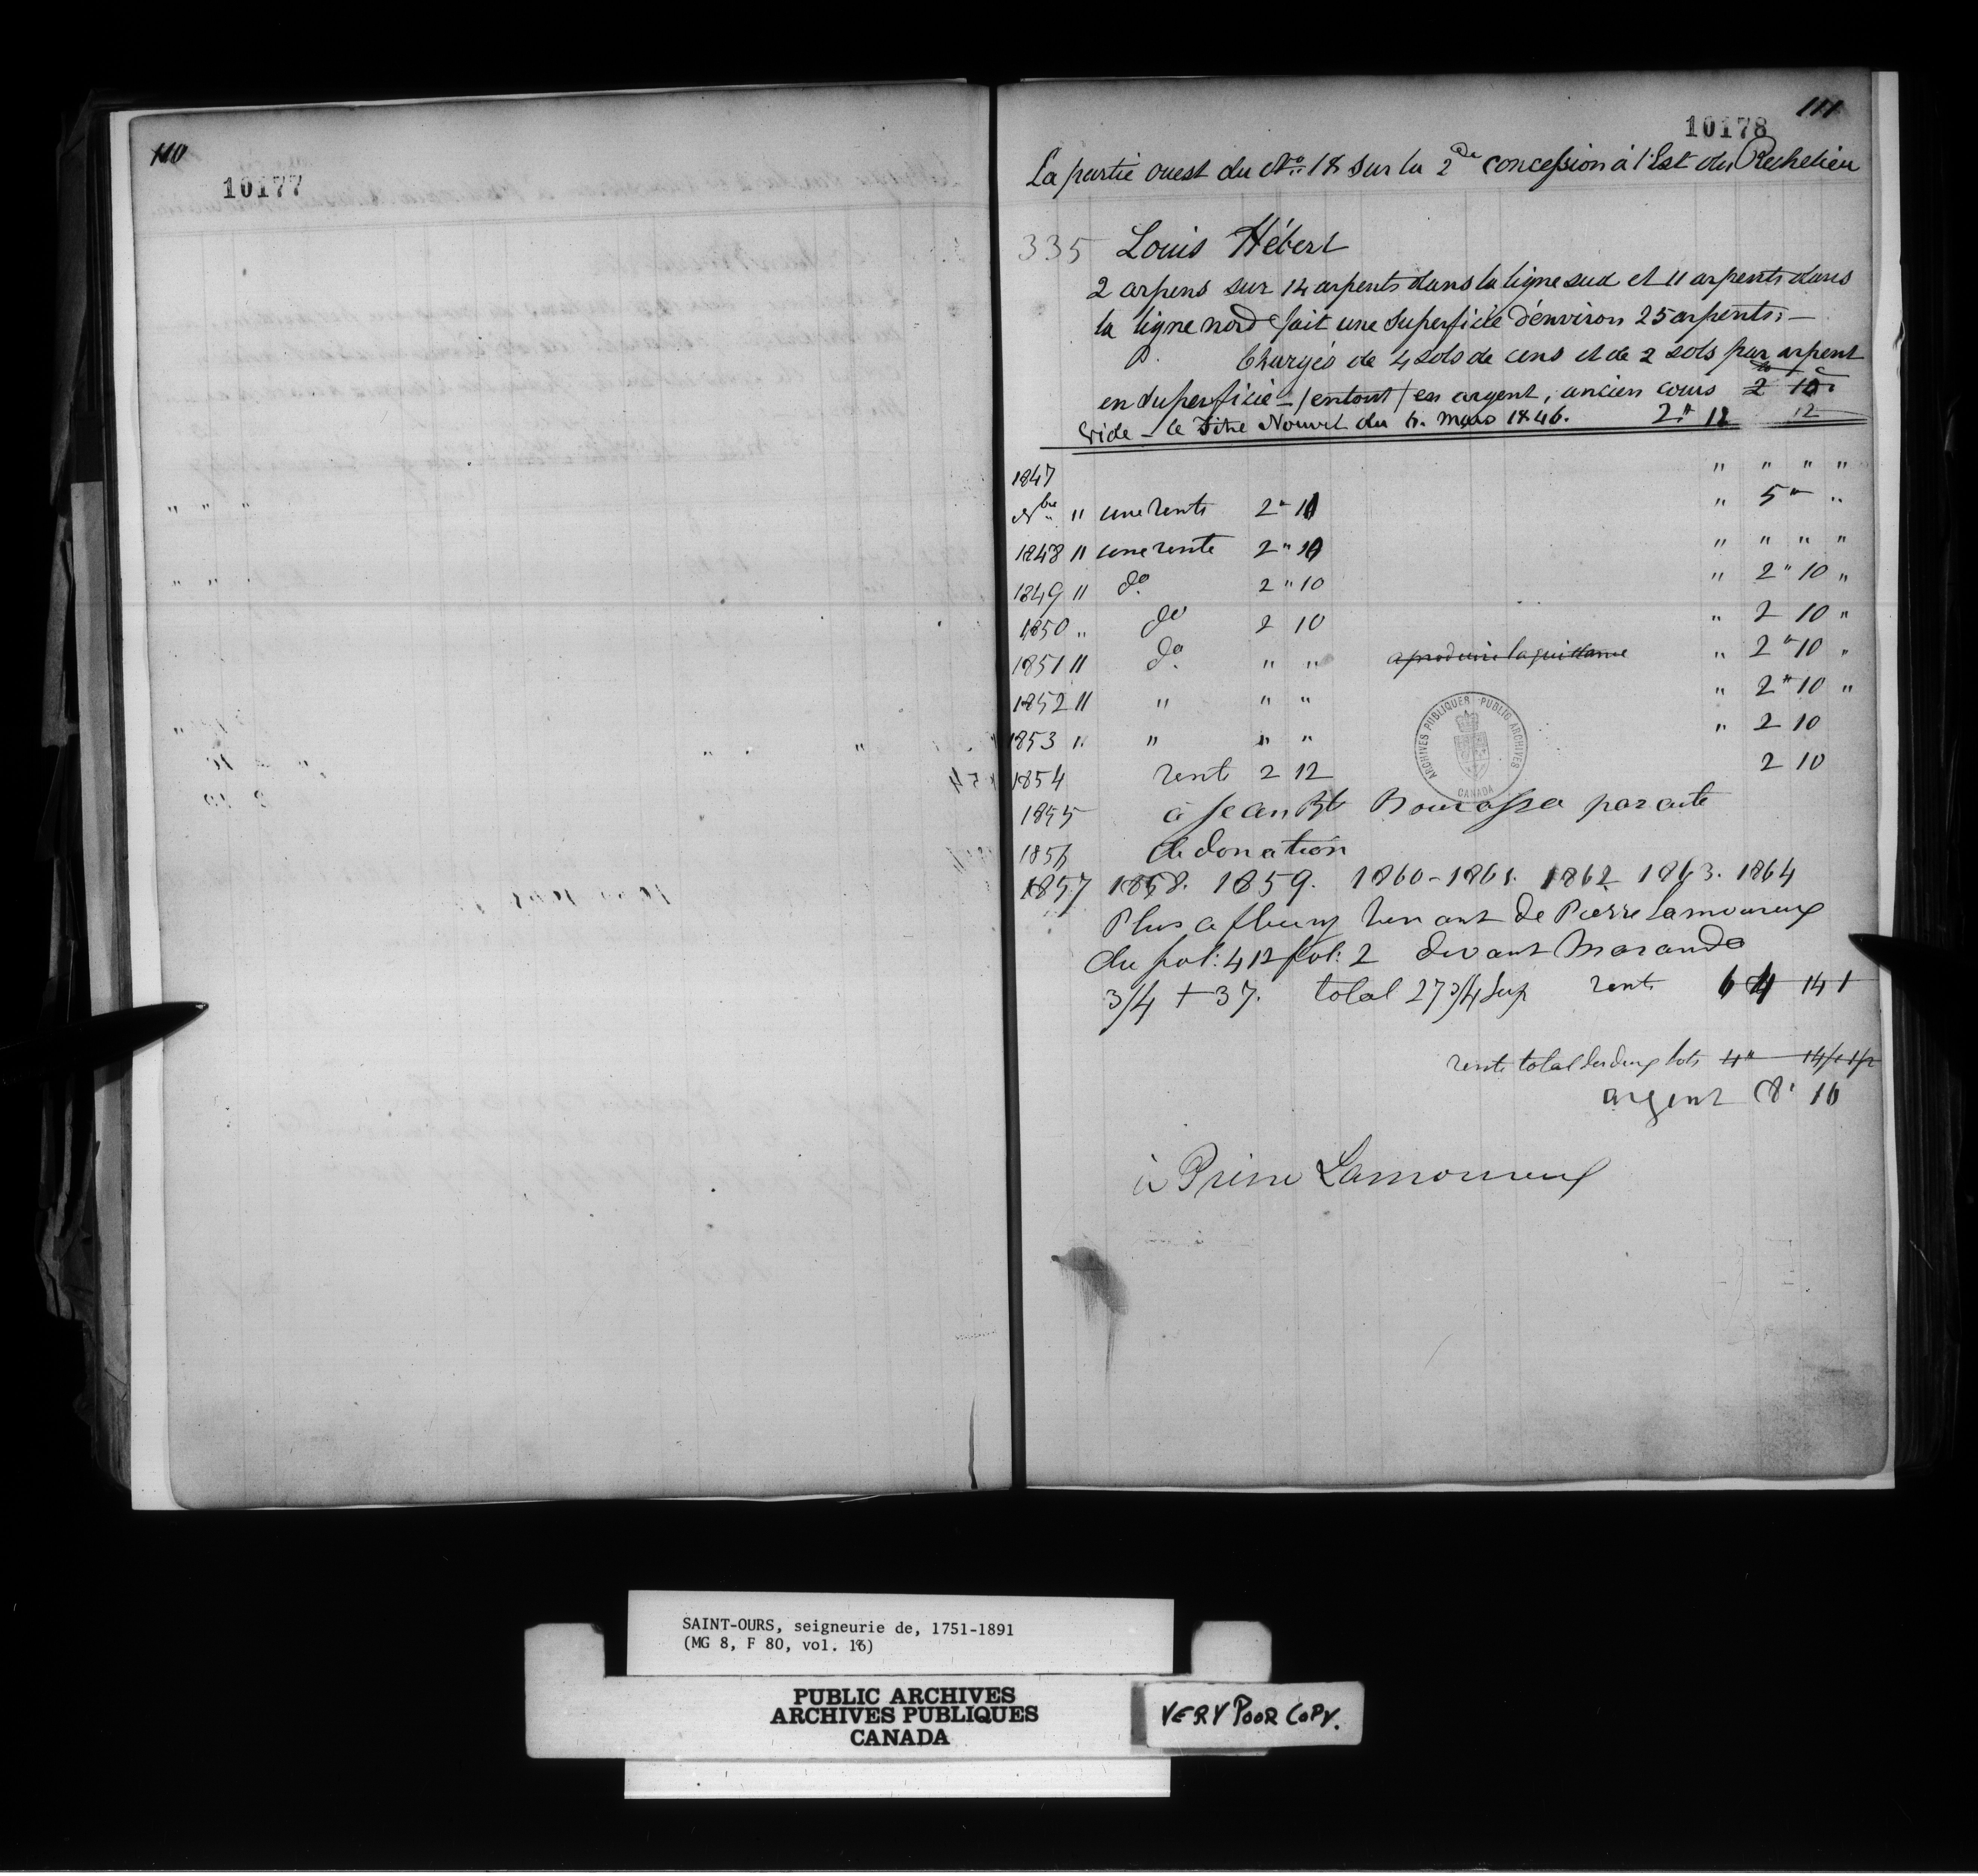 110
10177
111
10178
La partie ouest du No. 18 sur la 2de concession à l'Est du Richelieu
335 Louis Hébert
2 arpens sur 14 arpents dans la ligne sud et 11 arpents dans
la ligne nord fait une superficie d'environ 25 arpents. —
Chargés de 4 sols de cens et de 2 sols par arpent
en superficie — (en tout) en argent, ancien cours 2 10
Vide — le Titre Nouvel du 6. Mars 1846. 2 " 12 12
1847 " " " "
Nbre " une rente 2 " 10 " 5 " "
1848 " une rente 2 " 10 " " " "
1849 " do 2 " 10 " 2 " 10 "
1850 " do 2 10 " 2 10 "
1851 " do " " a produire la quittance " 2 " 10 "
1852 " " " " " 2 " 10 "
1853 " " " " " 2 10
1854 rente 2 12 2 10
1855 à Jean Bte Bourassa par acte
1856 de donation
1857 1858. 1859. 1860 - 1861. 1862 1863. 1864
Plus a fleury venant de Pierre Lamoureux
du fol: 412 fol: 2 devant Marando
3/4 + 37. total 27 3/4 Sup rente 6 4 14 1
rente total des deux lots 4 " 14
argent 8 " 16
à Pierre Lamoureux
ARCHIVES PUBLIQUES PUBLIC ARCHIVES
CANADA
SAINT-OURS, seigneurie de, 1751-1891
(MG 8, F 80, vol. 18)
PUBLIC ARCHIVES
ARCHIVES PUBLIQUES
CANADA
VERY POOR COPY.